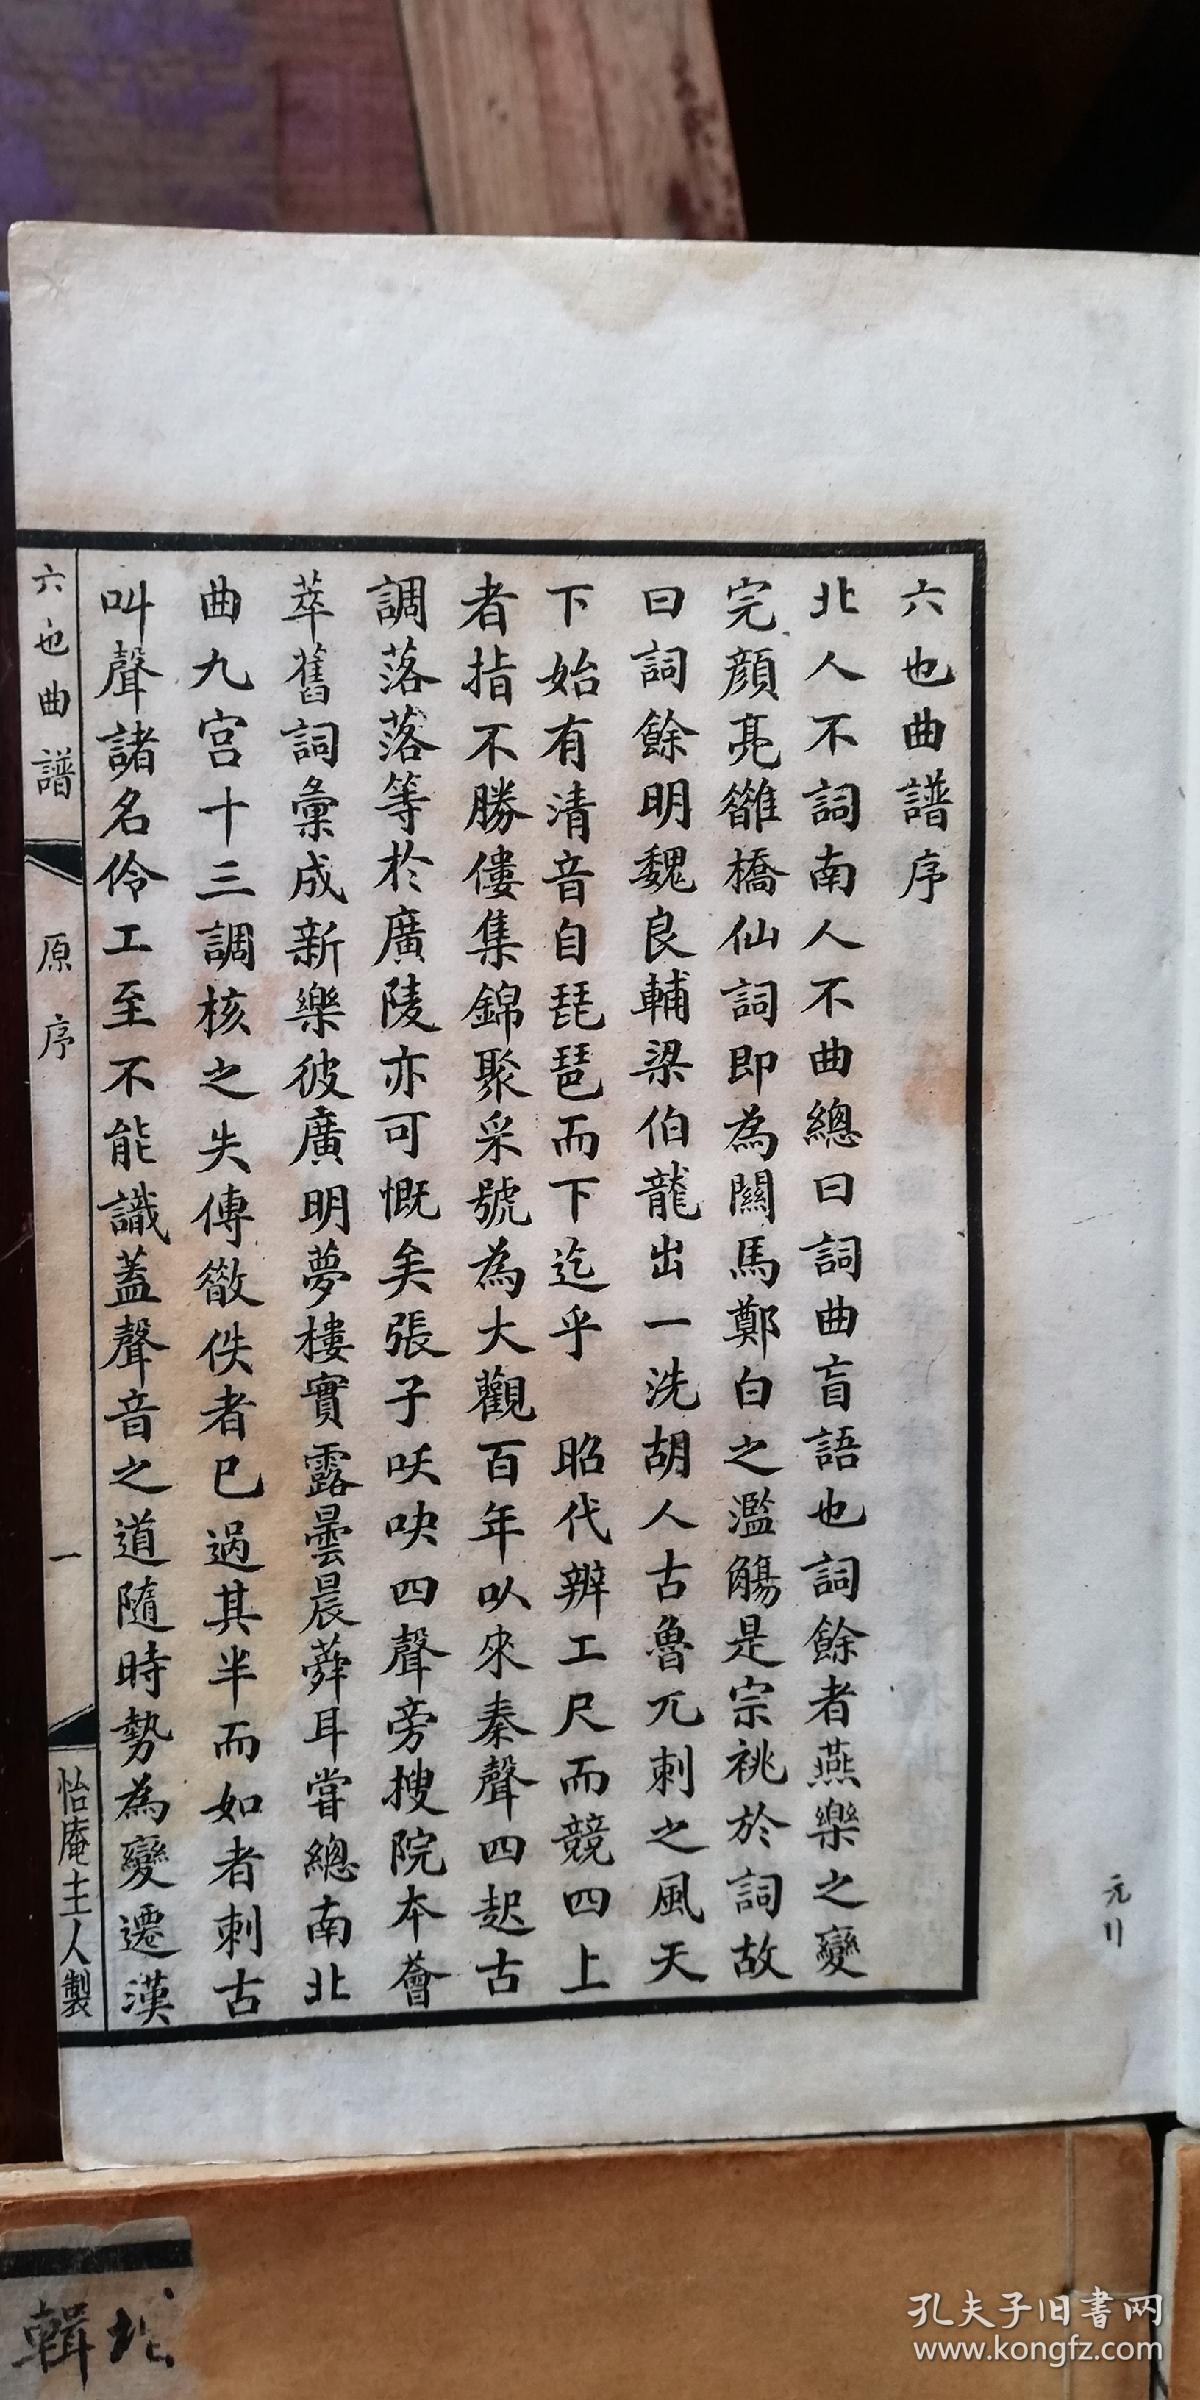 六也曲譜序
北人不詞南人不曲總曰詞曲盲語也詞餘者燕樂之變
完顏亮雒橋仙詞即為關馬鄭白之濫觴是宗祧於詞故
曰詞餘明魏良輔梁伯龍出一洗胡人古魯兀刺之風天
下始有清音自琵琶而下迄乎　昭代辨工尺而競四上
者指不勝僂集錦聚采號為大觀百年以來秦聲四起古
調落落等於廣陵亦可慨矣張子吷吷四聲旁搜院本薈
萃舊詞彙成新樂彼廣明夢樓實露曇晨蕣耳嘗總南北
曲九宮十三調核之失傳散佚者已過其半而如者刺古
叫聲諸名伶工至不能識蓋聲音之道隨時勢為變遷漢
六也曲譜
原序
一
怡庵主人製
元
輯
孔夫子旧书网
www.kongfz.com